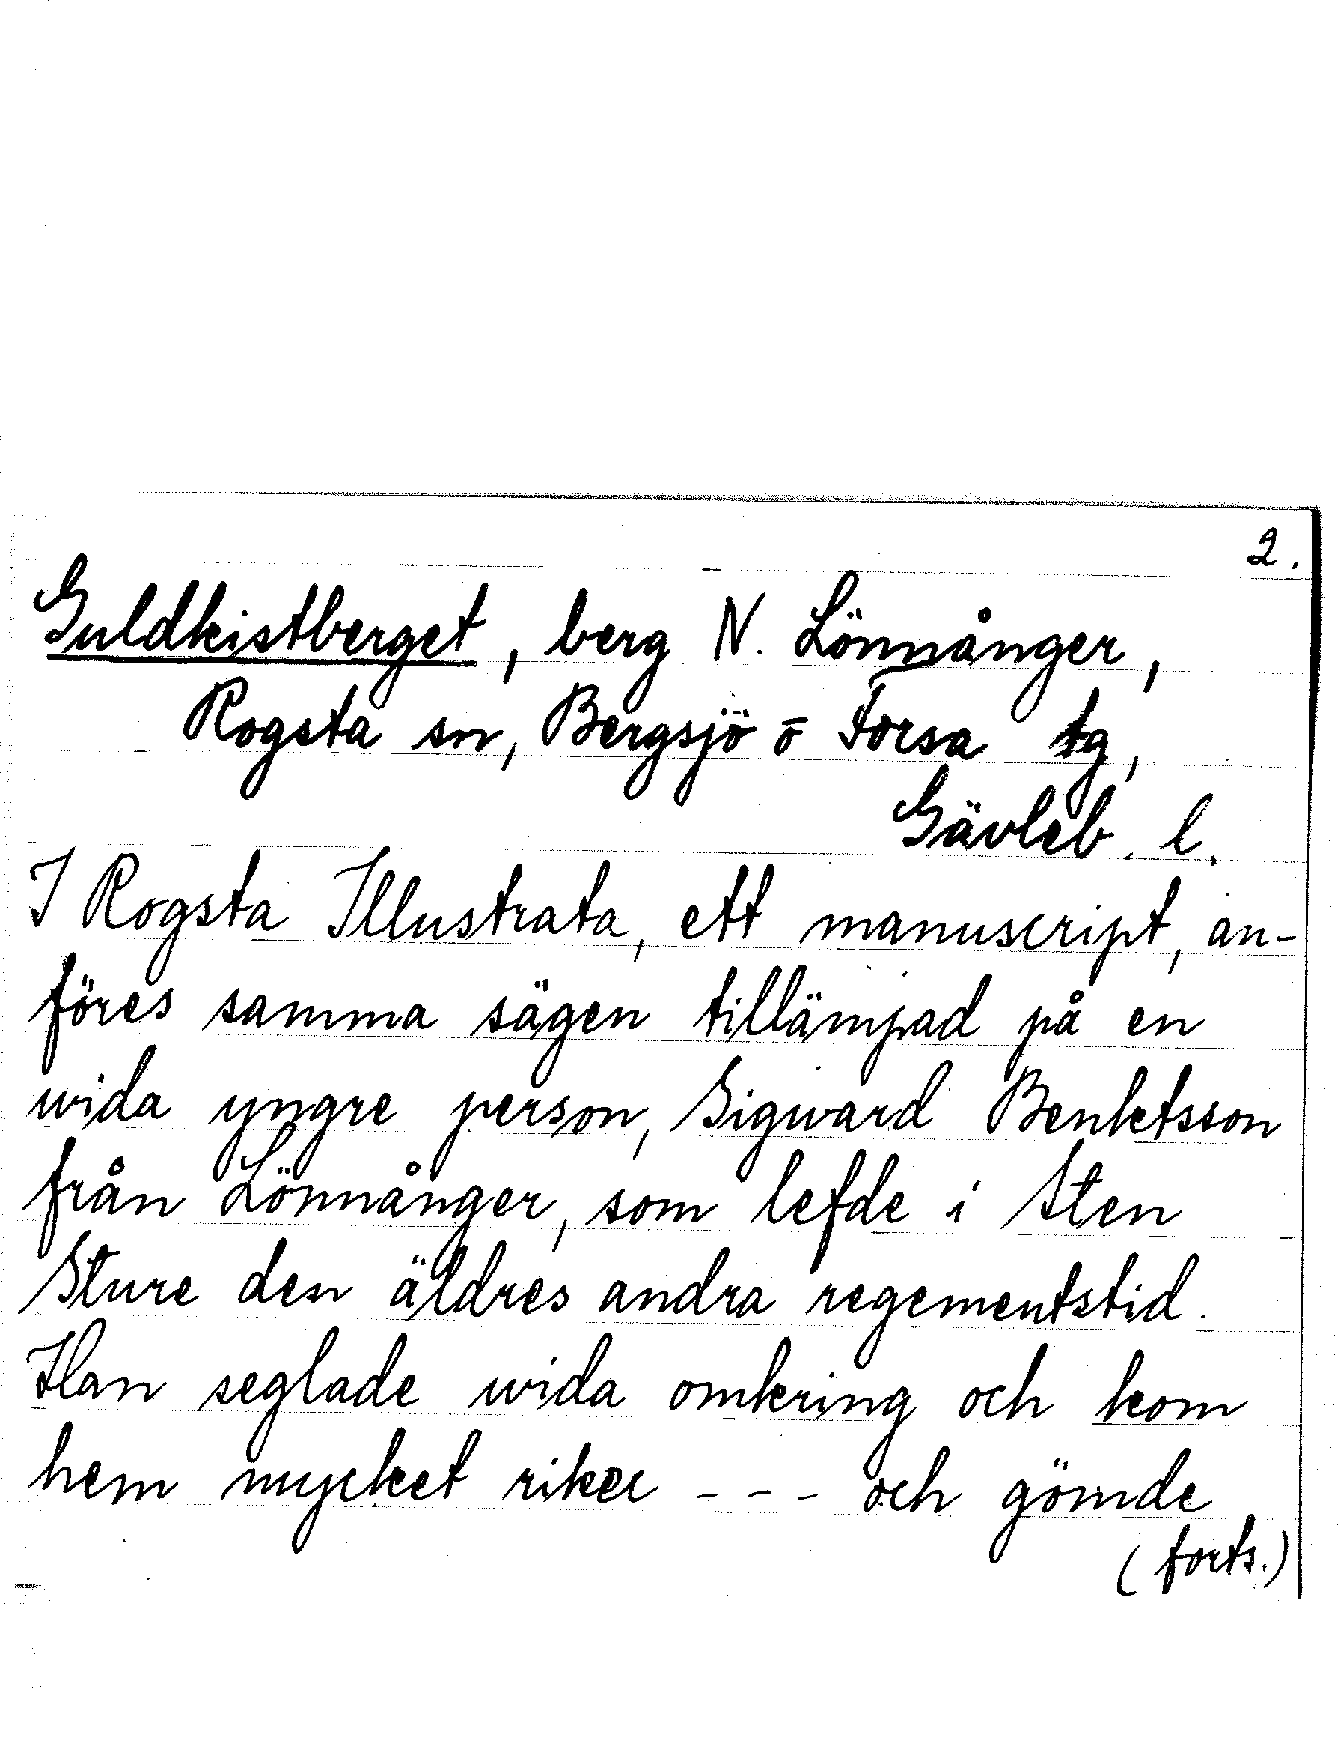 2.
Guldkistberget, berg N. Lönnånger,
Rogsta sn, Bergsjö o Forsa tg,
Gävleb. l.
I Rogsta Illustrata, ett manuscript, an-
föres samma sägen tillämpad på en
wida yngre person, Sigward Benktsson
från Lönnånger, som lefde i Sten
Sture den äldres andra regementstid.
Han seglade wida omkring och kom
hem mycket riker --- och gömde
(forts.)